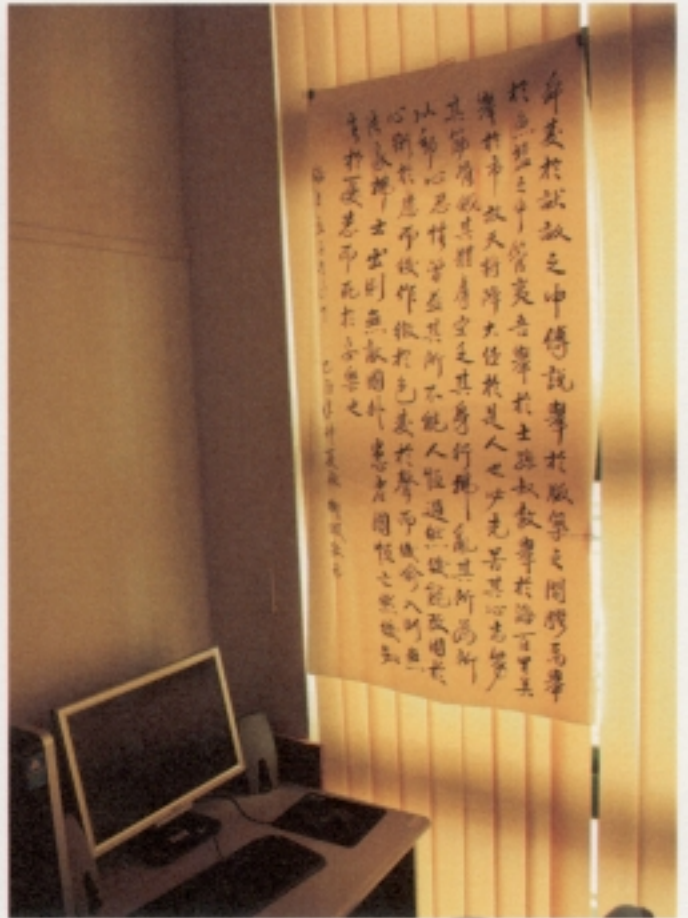 舜發於畎畝之中傅說舉於版築之間膠鬲舉
於魚鹽之中管夷吾舉於士孫叔敖舉於海百里奚
舉於市故天將降大任於是人也必先苦其心志勞
其筋骨餓其體膚空乏其身行拂亂其所為所
以動心忍性曾益其所不能人恒過然後能改困於
心衡於慮而後作徵於色發於聲而後喻入則無
法家拂士出則無敵國外患者國恒亡然後知
生於憂患而死於安樂也